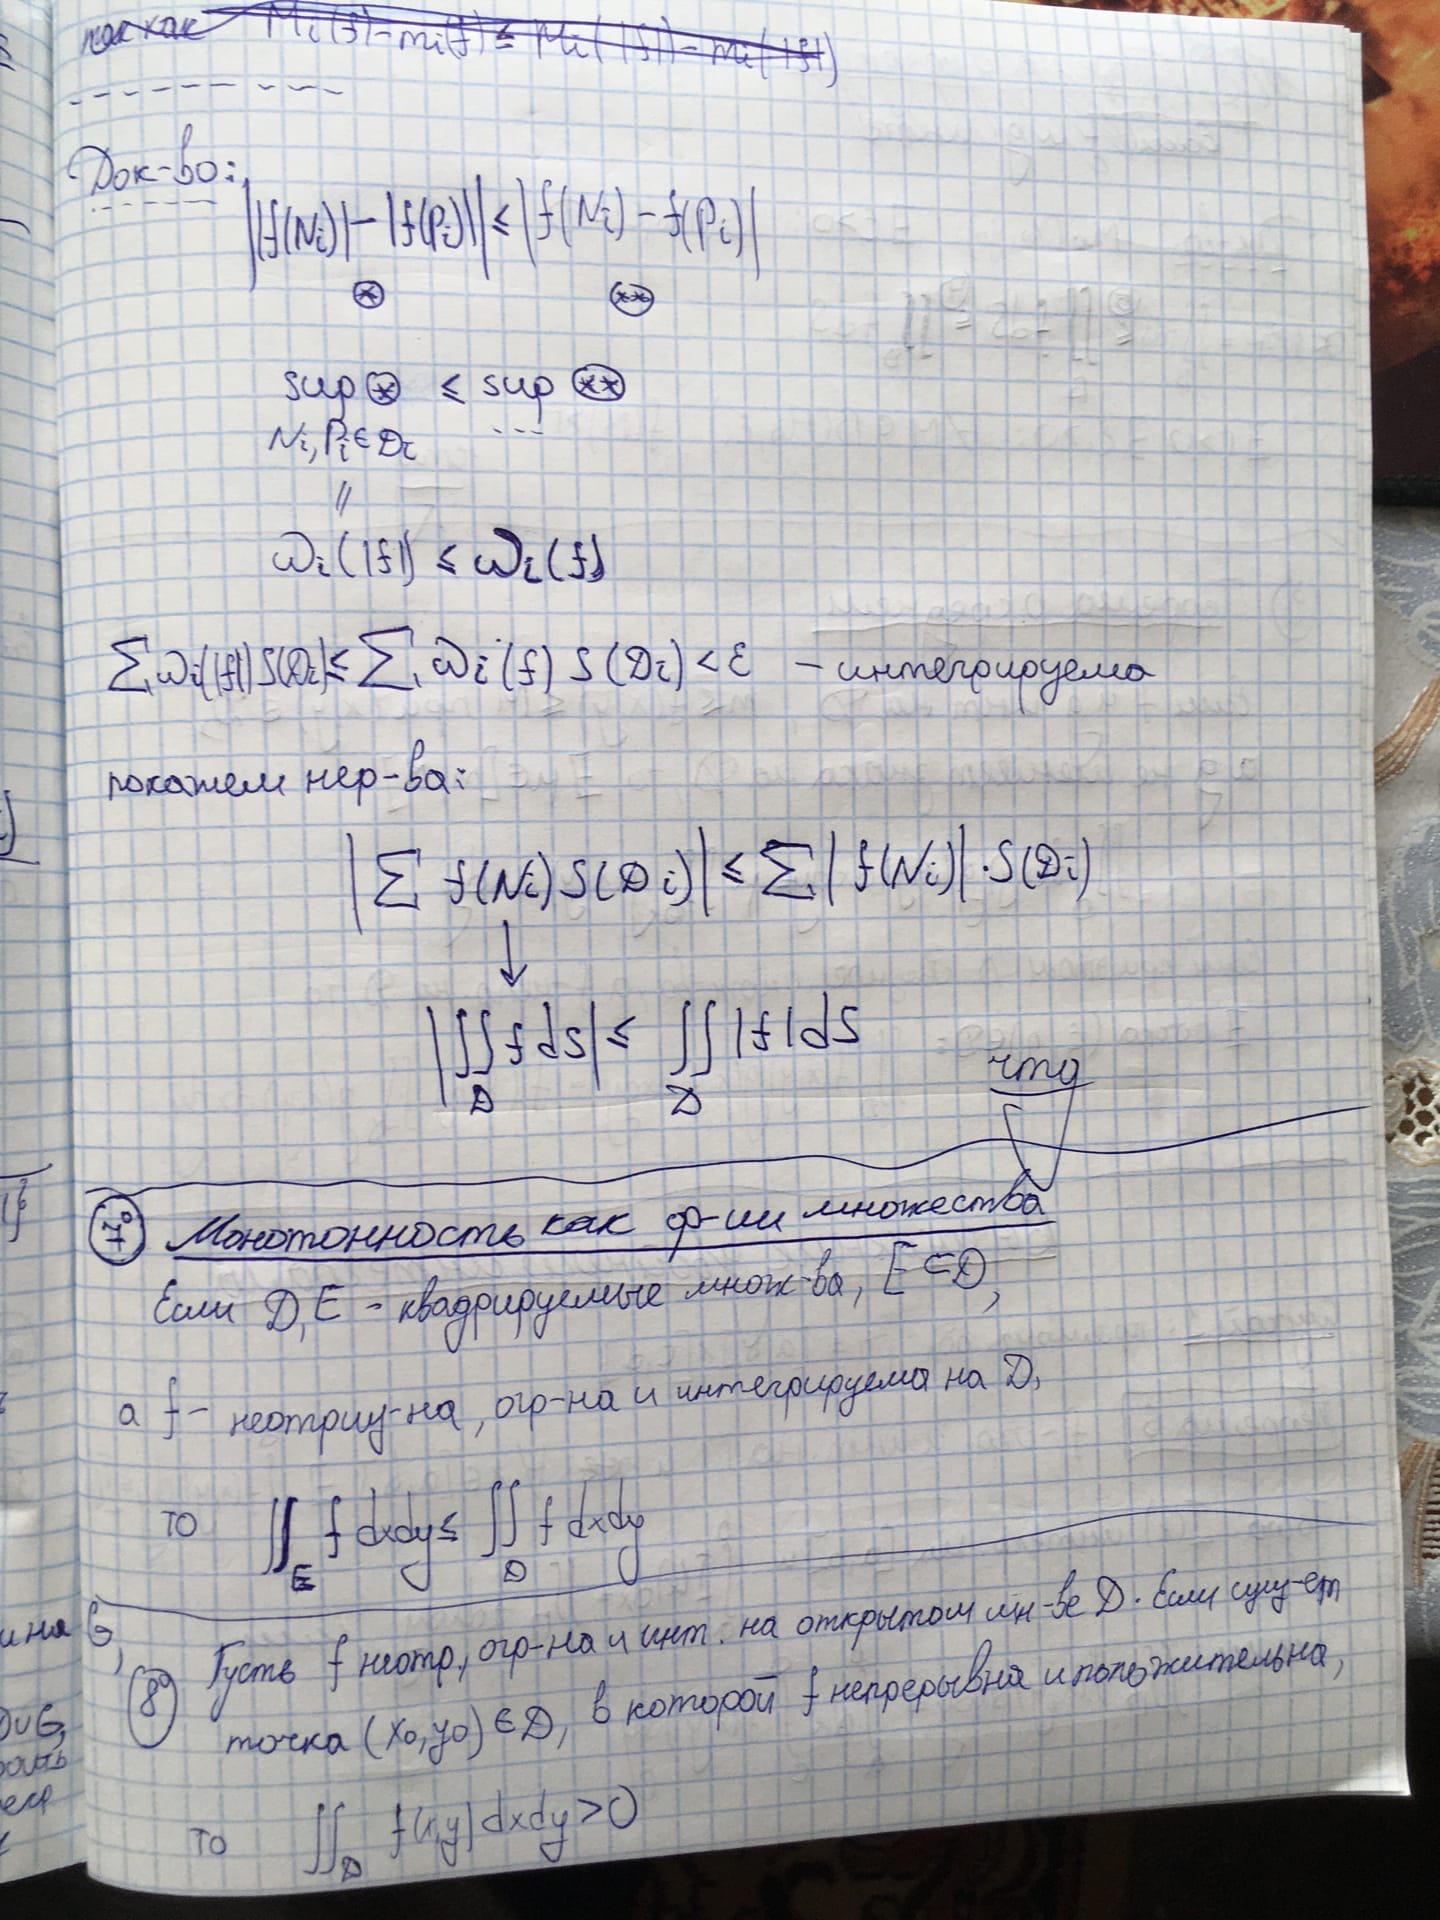 так как M_i(f) - m_i(f) ≤ M_i(|f|) - m_i(|f|)
Док-во:
||f(N_i)| - |f(P_i)|| ≤ |f(N_i) - f(P_i)|
⊛ (**)
sup ⊛ ≤ sup (**)
N_i, P_i ∈ D_i ---
||
ω_i(|f|) ≤ ω_i(f)
∑ ω_i(|f|) S(D_i) ≤ ∑ ω_i(f) S(D_i) < ε - интегрируема
покажем нер-ва:
|∑ f(N_i) S(D_i)| ≤ ∑ |f(N_i)| · S(D_i)
↓
|∬_D f dS| ≤ ∬_D |f| dS
чтд
7° Монотонность как ф-ии множества
Если D, E - квадрируемые множ-ва, E ⊂ D,
а f - неотриц-на, огр-на и интегрируема на D,
то ∬_E f dxdy ≤ ∬_D f dxdy
8° Пусть f неотр., огр-на и инт. на открытом мн-ве D. Если сущ-ет
точка (x_0, y_0) ∈ D, в которой f непрерывна и положительна,
то ∬_D f(x,y) dxdy > 0